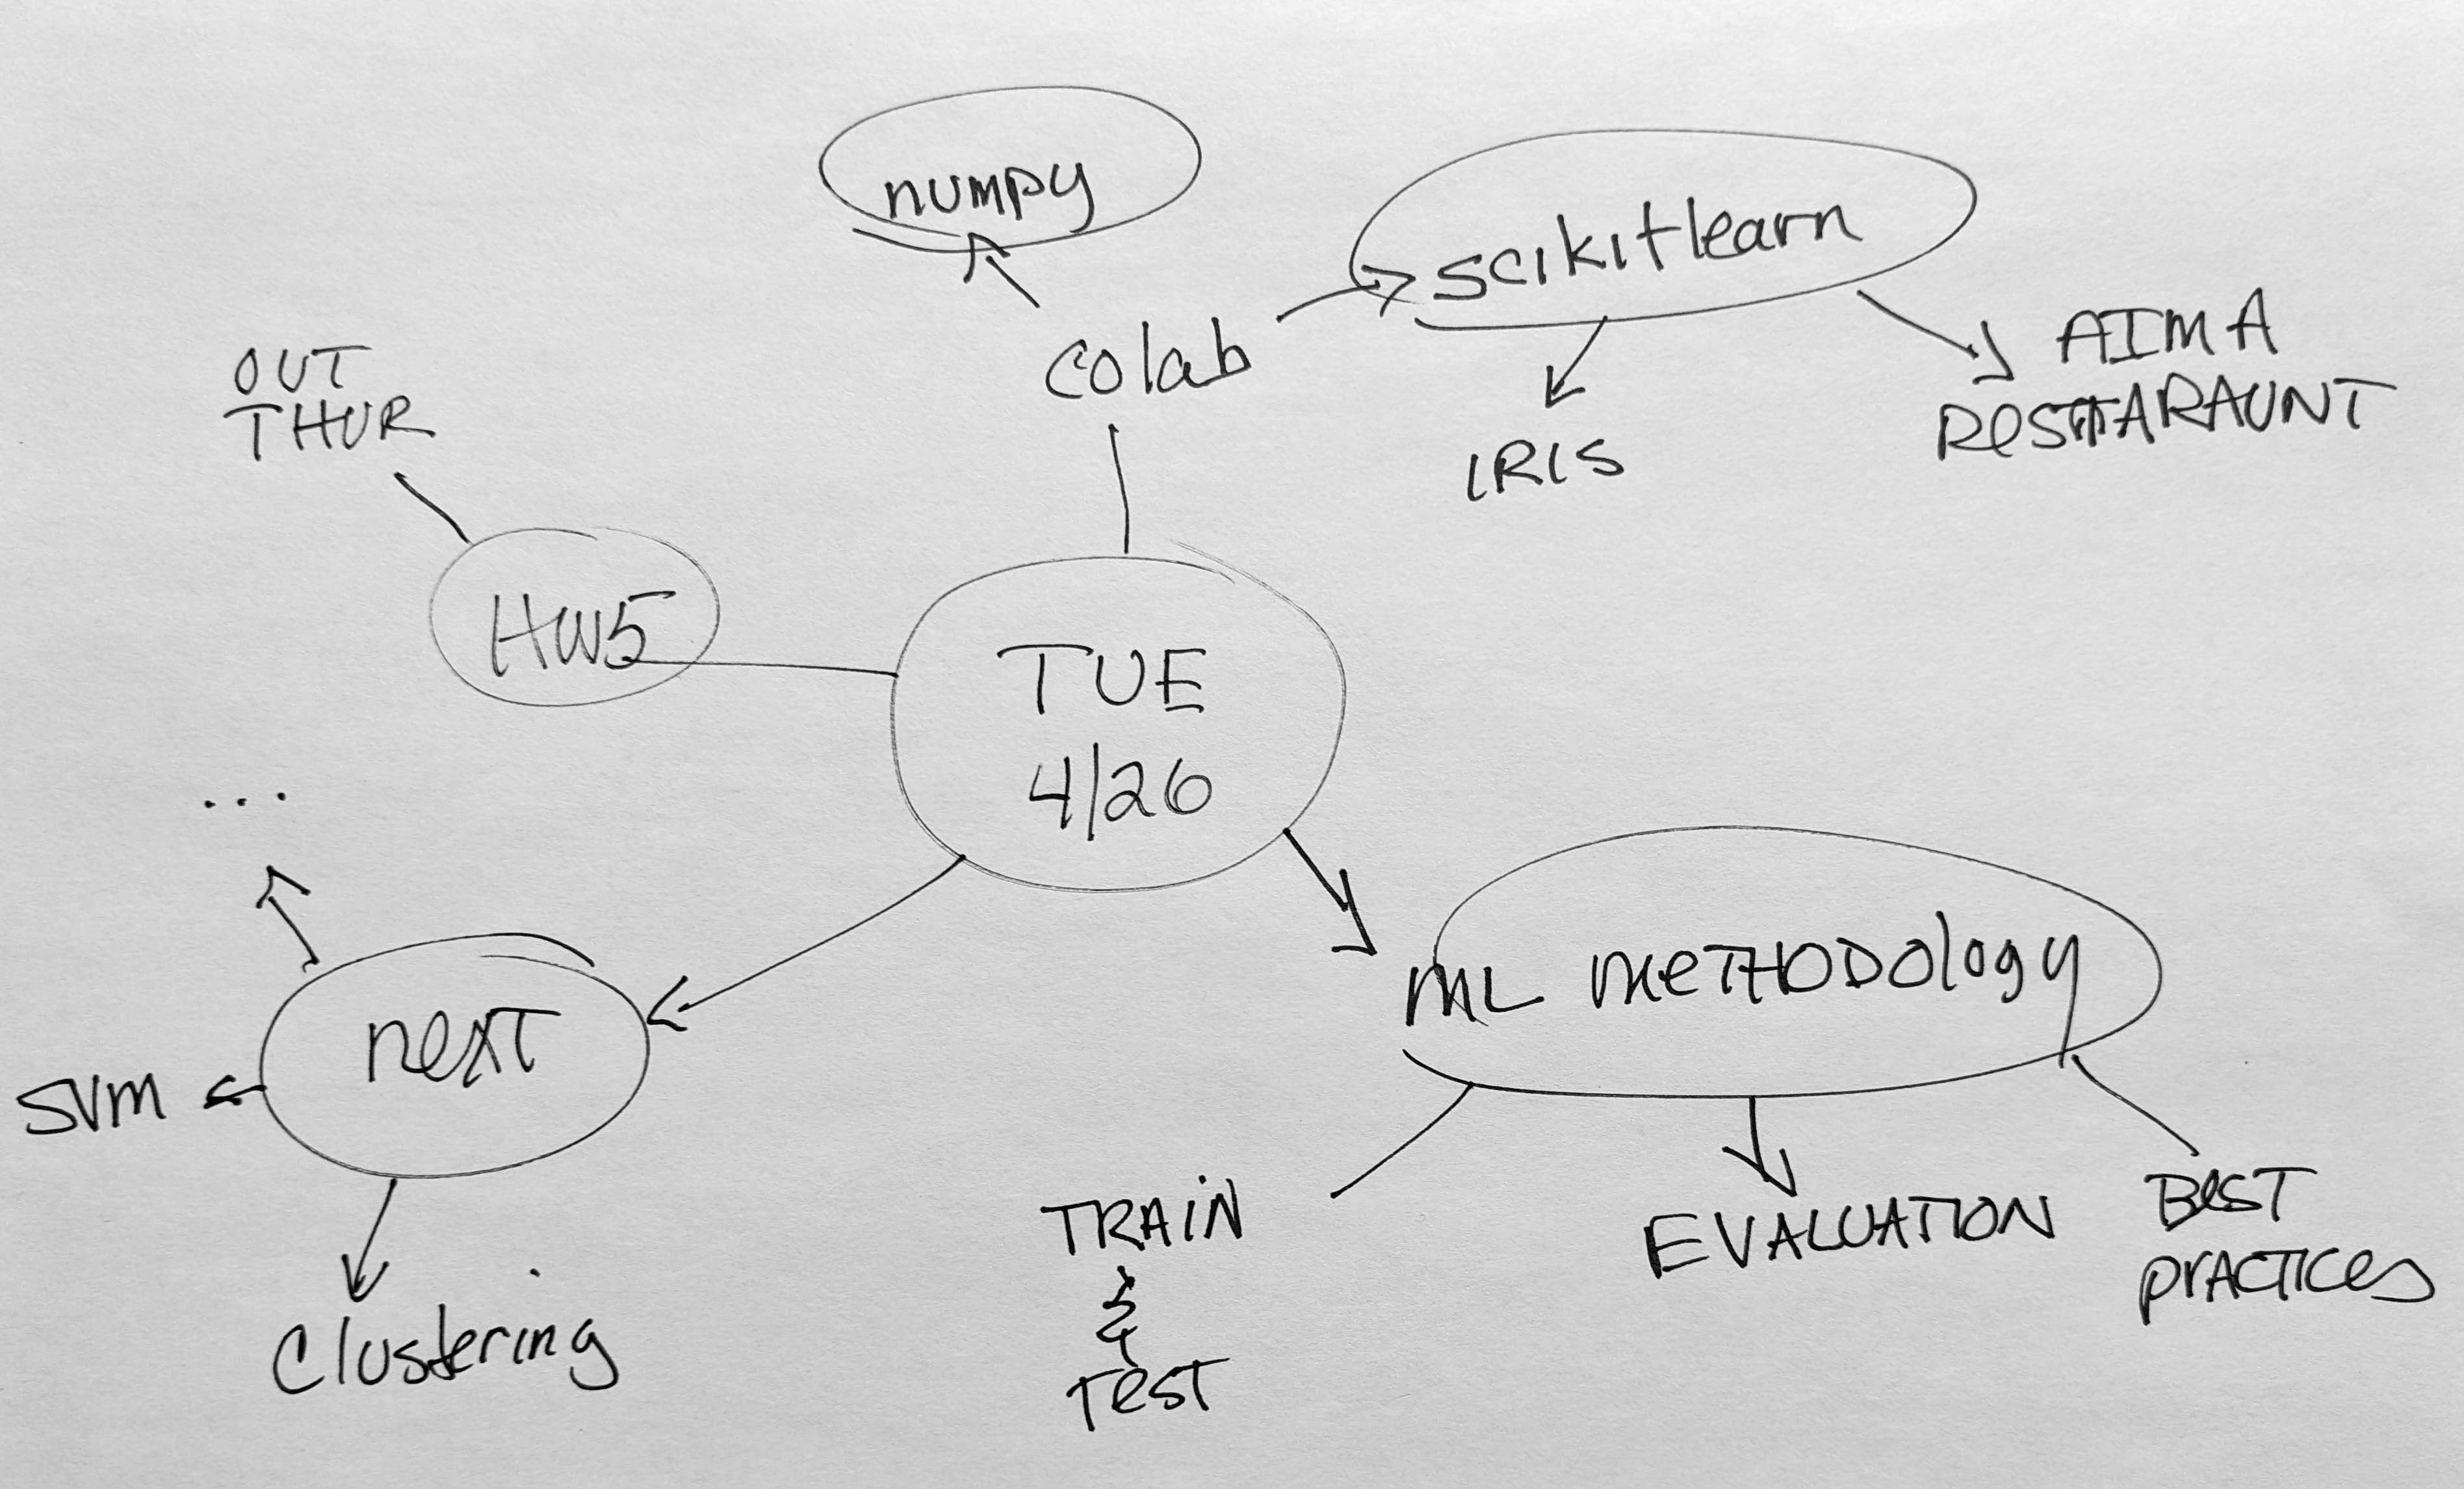 numpy
scikitlearn
colab
AIMA
RESTARAUNT
IRIS
OUT
THUR
HW5
TUE
4/26
...
next
SVM
Clustering
ML METHODOlogy
TRAiN
&
TEST
EVALUATION
BeST
PrACTICes